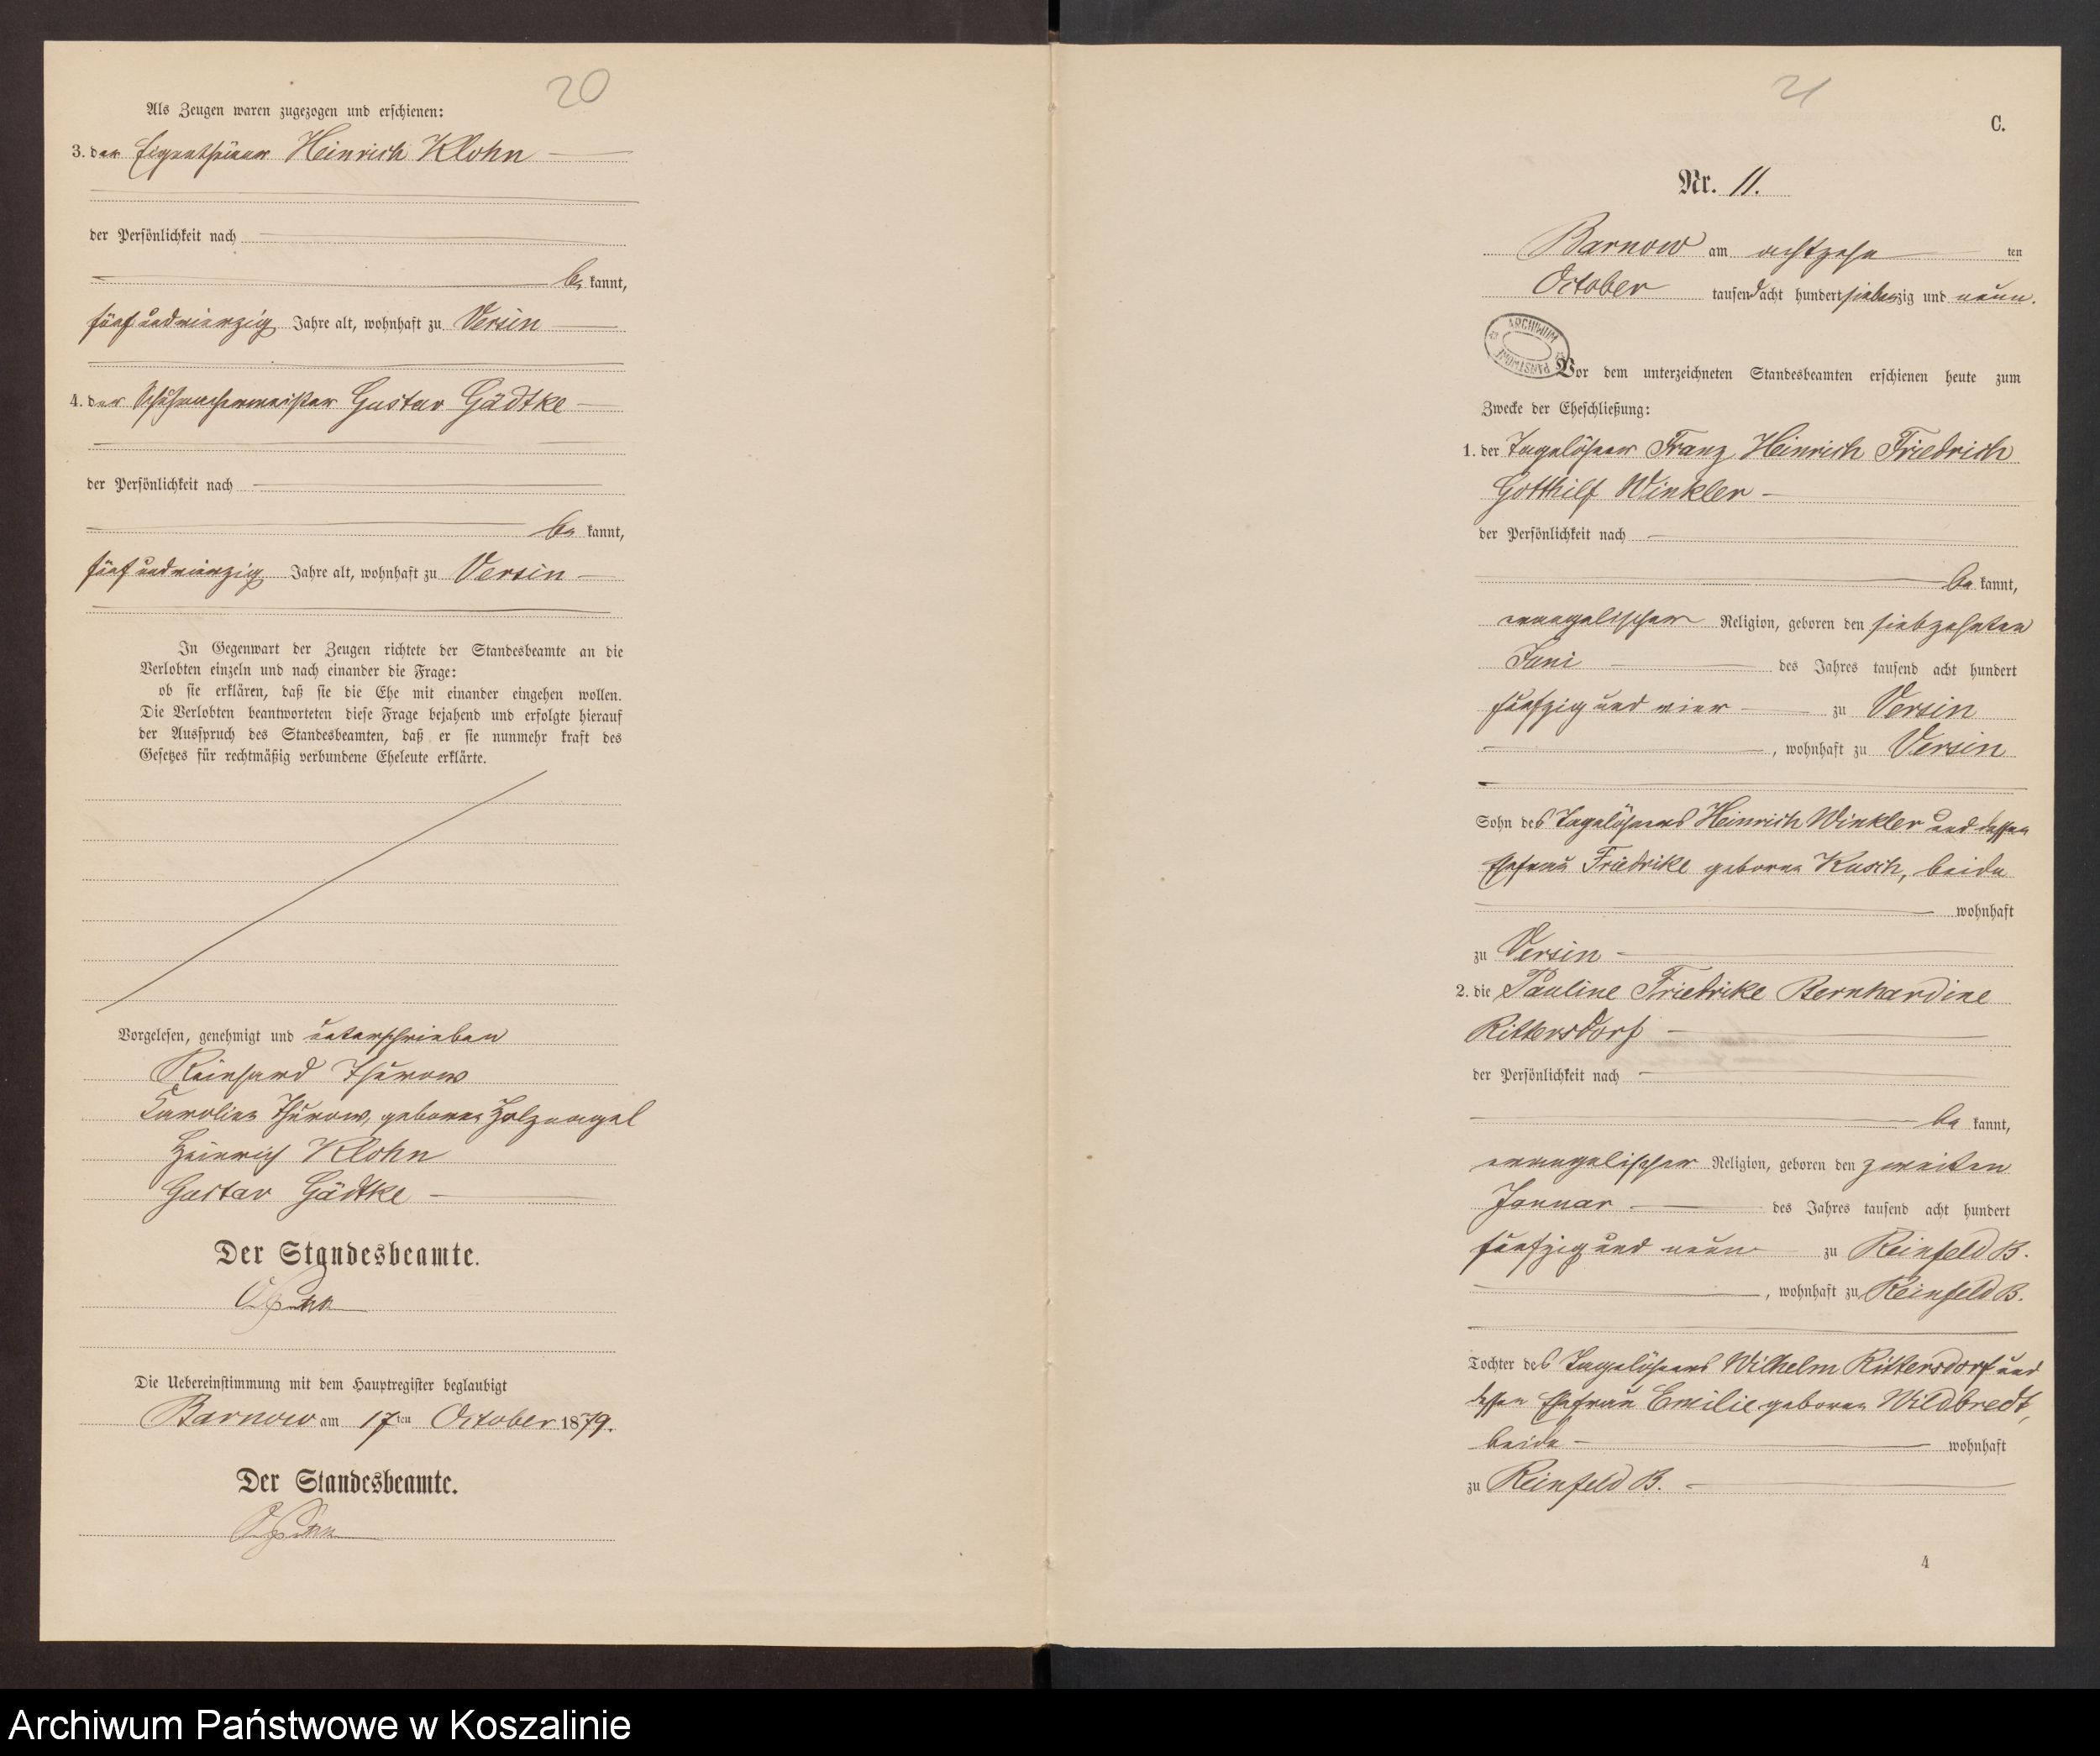 20
Als Zeugen waren zugezogen und erschienen:
3. der Eigenthümer Heinrich Klohn
der Persönlichkeit nach
be kannt,
fünf und vierzig Jahre alt, wohnhaft zu Versin
4. der Schuhmachermeister Gustav Gädtke
der Persönlichkeit nach
be kannt,
fünf und vierzig Jahre alt, wohnhaft zu Versin
In Gegenwart der Zeugen richtete der Standesbeamte an die
Verlobten einzeln und nach einander die Frage:
ob sie erklären, daß sie die Ehe mit einander eingehen wollen.
Die Verlobten beantworteten diese Frage bejahend und erfolgte hierauf
der Ausspruch des Standesbeamten, daß er sie nunmehr kraft des
Gesetzes für rechtmäßig verbundene Eheleute erklärte.
Vorgelesen, genehmigt und unterschrieben
Reinhard Thurow
Caroline Thurow, geborene Holznagel
Heinrich Klohn
Gustav Gädtke
Der Standesbeamte.
Die Uebereinstimmung mit dem Hauptregister beglaubigt
Barnow am 17ten October 1879.
Der Standesbeamte.
21
C.
Nr. 11.
Barnow am achtzehn ten
October tausend acht hundert siebenzig und neun.
ARCHIWUM PAŃSTWOWE
Vor dem unterzeichneten Standesbeamten erschienen heute zum
Zwecke der Eheschließung:
1. der Tagelöhner Franz Heinrich Friedrich
Gotthilf Winkler
der Persönlichkeit nach
be kannt,
evangelischer Religion, geboren den siebzehnten
Juni des Jahres tausend acht hundert
fünfzig und vier zu Versin
, wohnhaft zu Versin
Sohn des Tagelöhners Heinrich Winkler und dessen
Ehefrau Friedrike geborne Kusch, beide
wohnhaft
zu Versin
2. die Pauline Friedrike Bernhardine
Rittersdorf
der Persönlichkeit nach
be kannt,
evangelischer Religion, geboren den zweiten
Januar des Jahres tausend acht hundert
fünfzig und neun zu Reinfeld B.
, wohnhaft zu Reinfeld B.
Tochter des Tagelöhners Wilhelm Rittersdorf und
dessen Ehefrau Emilie geborne Wildbredt,
beide wohnhaft
zu Reinfeld B.
4
Archiwum Państwowe w Koszalinie